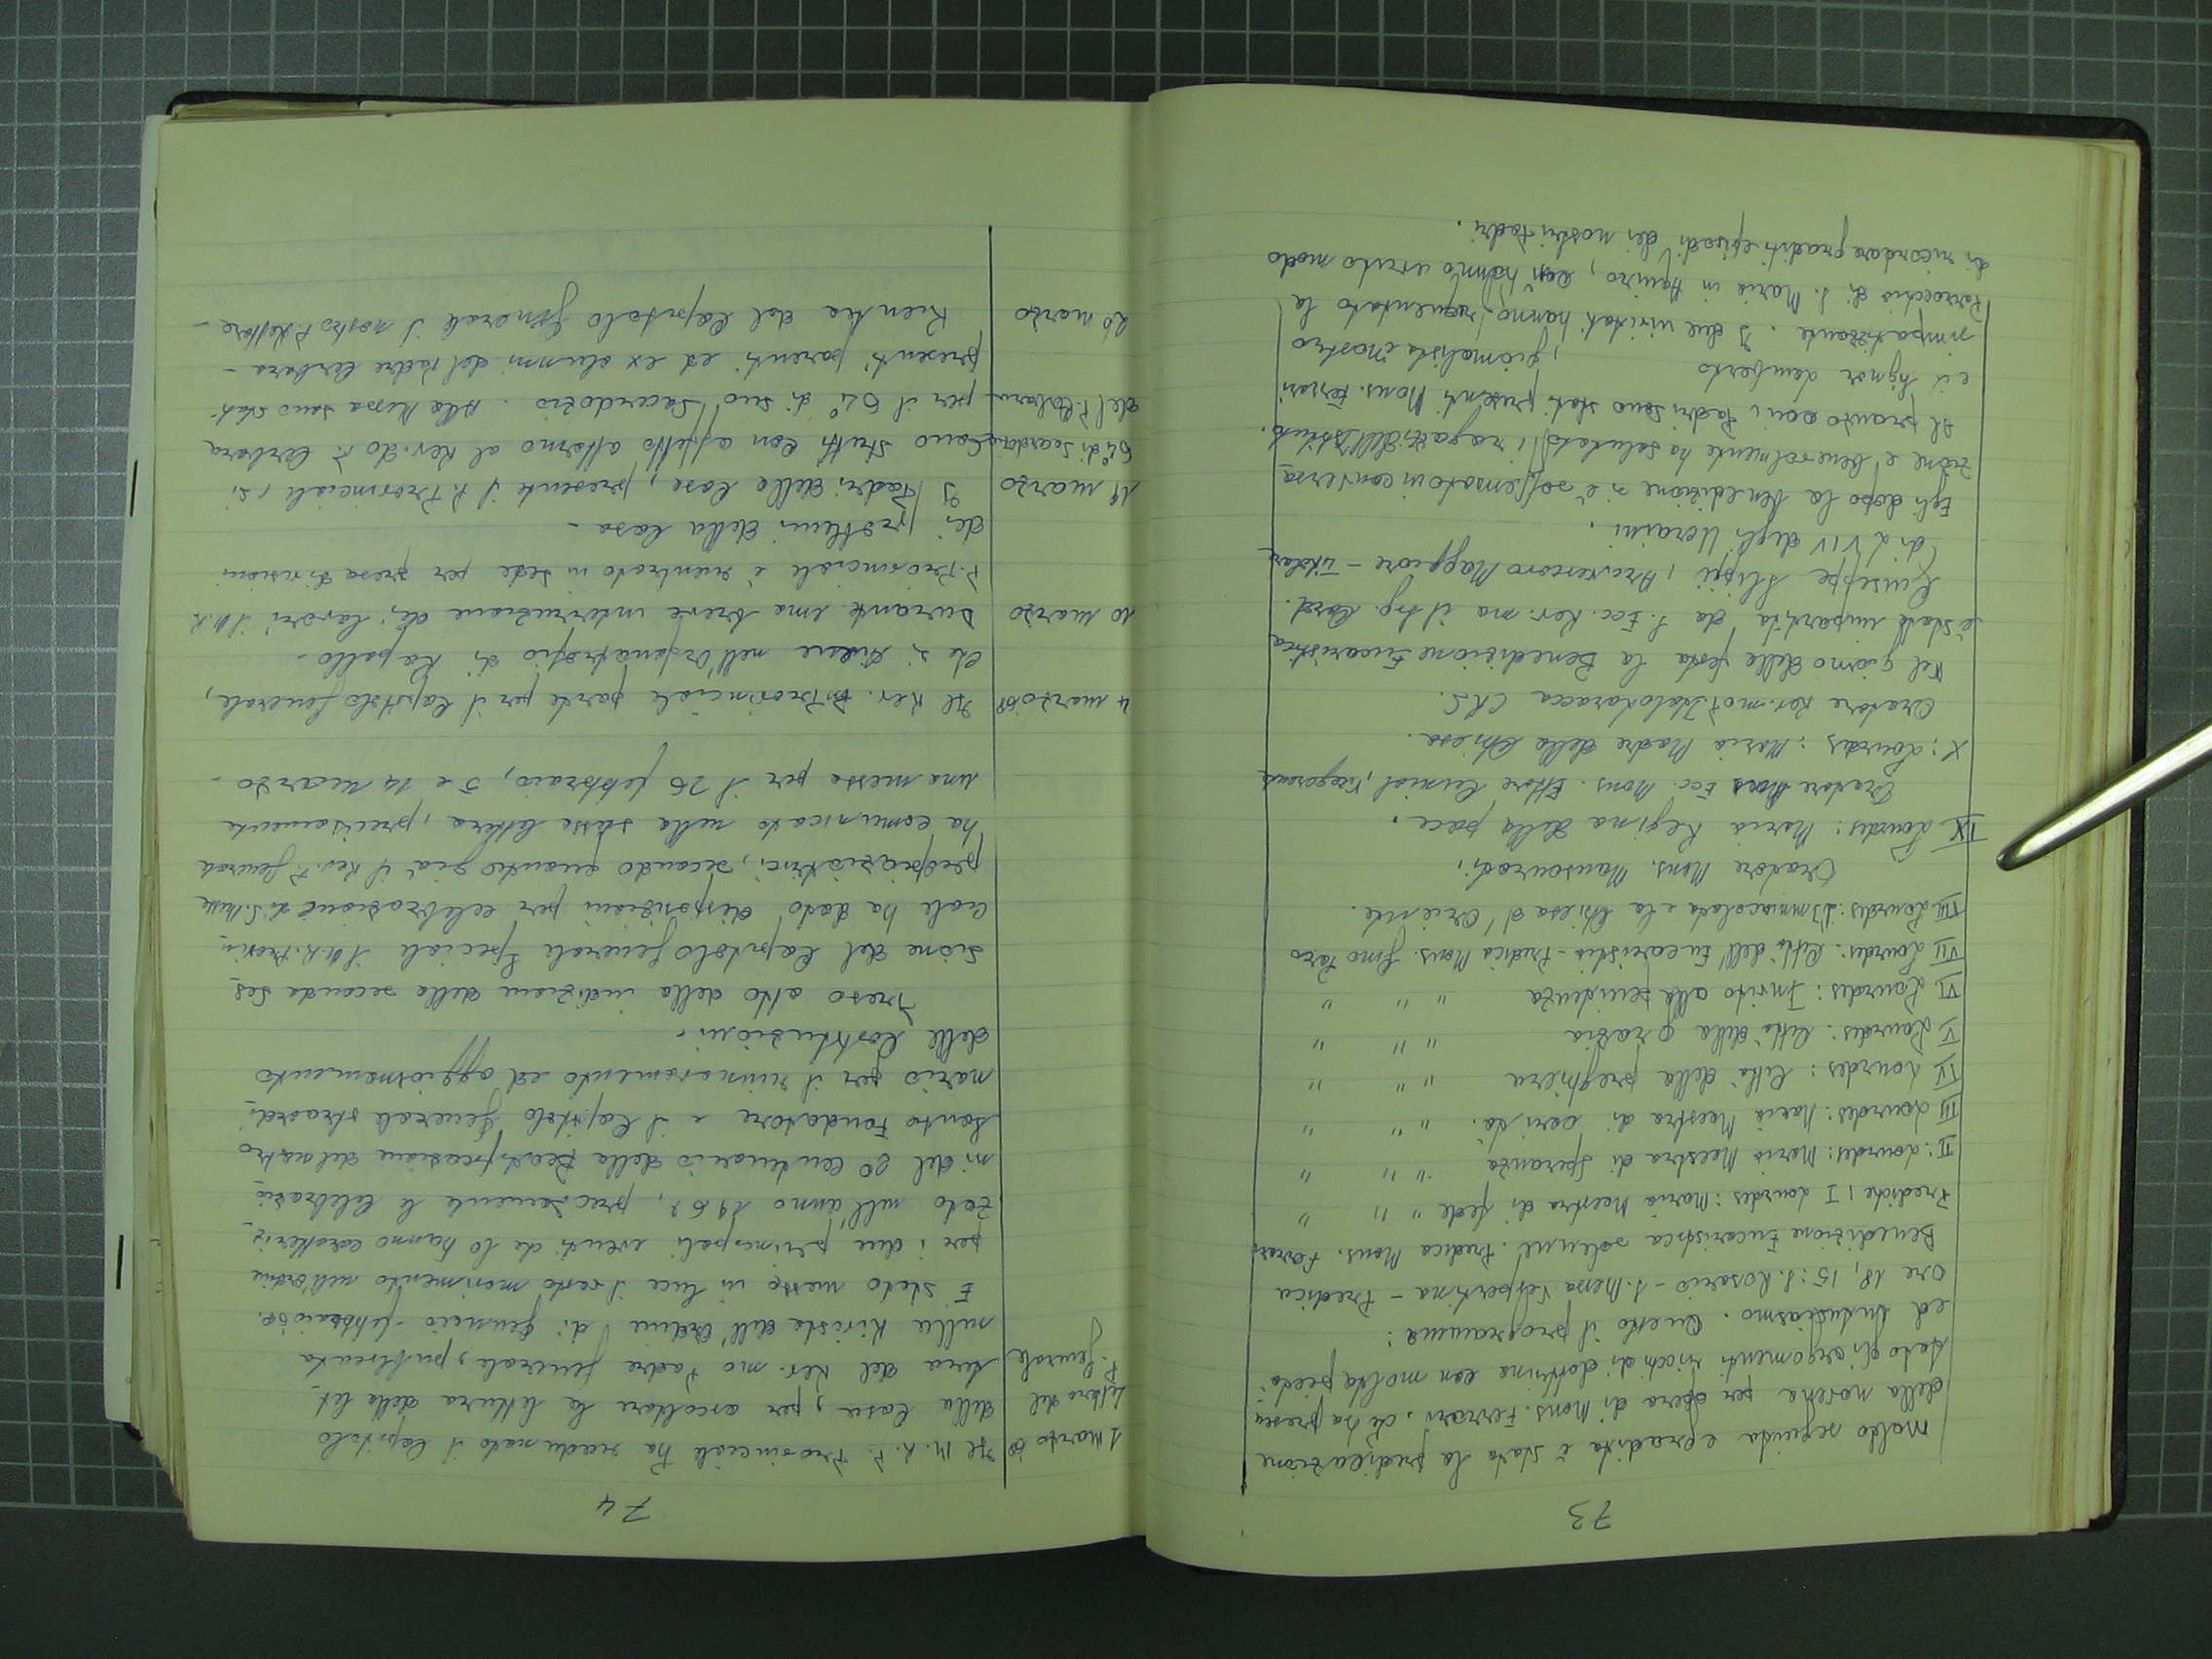 73
Molto seguita e gradita è stata la predicazione
della novena per opera di Mons. Ferrari, che ha presen
tato gli argomenti ricchi di dottrina con molta pietà
ed entusiasmo. Questo il programma:
ore 18,15: S. Rosario - S. Messa Vespertina - Predica
Benedizione Eucaristica solenne. Predica Mons. Ferrari
Prediche: I Lourdes: Maria Maestra di fede " " "
II: Lourdes: Maria Maestra di speranza " " "
III Lourdes: Maria Maestra di carità. " " "
IV Lourdes: Città della preghiera " " "
V Lourdes: Città della grazia " " "
VI Lourdes: Invito alla penitenza " " "
VII Lourdes: Città dell'Eucaristia - Predica Mons. Gino Paro
VIII Lourdes: L'Immacolata e la Chiesa d'Oriente.
Oradore Mons. Mansourati
IX Lourdes: Maria Regina della pace.
Oradore Mons Ecc. Mons. Ettore Cunial, Vicegerente
X: Lourdes: Maria Madre della Chiesa.
Oradore Rev.mo P. Italo Laracca CRS.
Nel giorno della festa la Benedizione Eucaristica
è stata impartita da S. Ecc. Rev.ma il Sig. Card.
Giuseppe Slipji, Arcivescovo Maggiore -
di LVIV degli Ucraini.
Egli dopo la benedizione si è soffermato in conversa
zione e benevolmente ha salutato i ragazzi dell'Istituto.
Al pranzo con i Padri sono stati presenti Mons. Ferrari
e il Signor Lamberto , giornalista nostro
simpatizzante. I due invitati hanno frequentato la
Parrocchia di S. Maria in Aquiro, così hanno avuto modo
di ricordare graditi episodi dei nostri Padri.
74
1 marzo 69 Il M. R. P. Provinciale ha radunato il Capitolo
Lettera del della Casa, per ascoltare la lettura della let
P. Generale tera del Rev.mo Padre Generale, pubblicata
sulla Rivista dell'Ordine di gennaio-febbraio 68.
È stato messo in luce il vasto movimento nell'Ordine
per i due principali eventi che lo hanno caratteriz
zato nell'anno 1968, precisamente le Celebrazio
ni del Centenario della Beatificazione del nostro
Santo Fondatore e il Capitolo Generale straordi
nario per il rinnovamento ed aggiornamento
delle Costituzioni.
Preso atto della indizione della seconda ses
sione del Capitolo Generale Speciale il M.R. Provin
ciale ha dato disposizioni per celebrazioni di S. Messe
propiziatrici, secondo quanto già il Rev. P. Generale
ha comunicato nella stessa lettera, precisamente
una messa per il 26 febbraio, 5 e 14 Marzo -
4 marzo 68 Il Rev. P. Provinciale parte per il Capitolo Generale,
che si tiene nell'Orfanotrofio di Rapallo -
10 marzo Durante una breve interruzione dei lavori il M.R.
P. Provinciale è rientrato in sede per presa visione
dei problemi della Casa -
19 marzo I Padri della Casa, presente il P. Provinciale, si
64° di Sacerdozio sono stretti con affetto attorno al Rev.do P. Cerbara
del P. Cerbara per il 64° di suo Sacerdozio. Alla Messa sono stati
presenti parenti ed ex alunni del Padre Cerbara -
20 marzo Rientra dal Capitolo Generale il nostro P. Rettore -